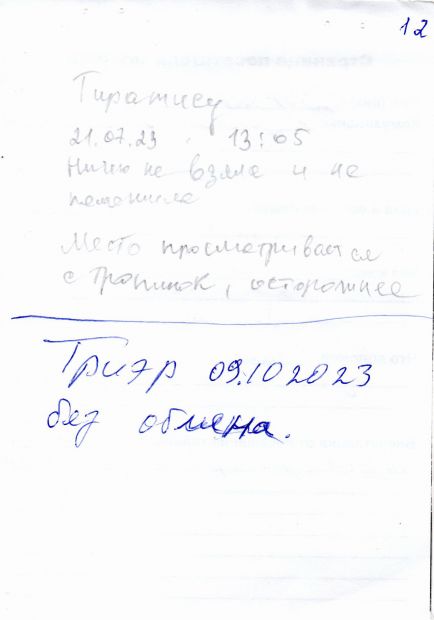 12
Тиратису
21.07.23 13:05
Ничего не взяла и не
поменяла
Место просматривается
с тропинок, осторожнее
Триэр 09.10 2023
без обмена.